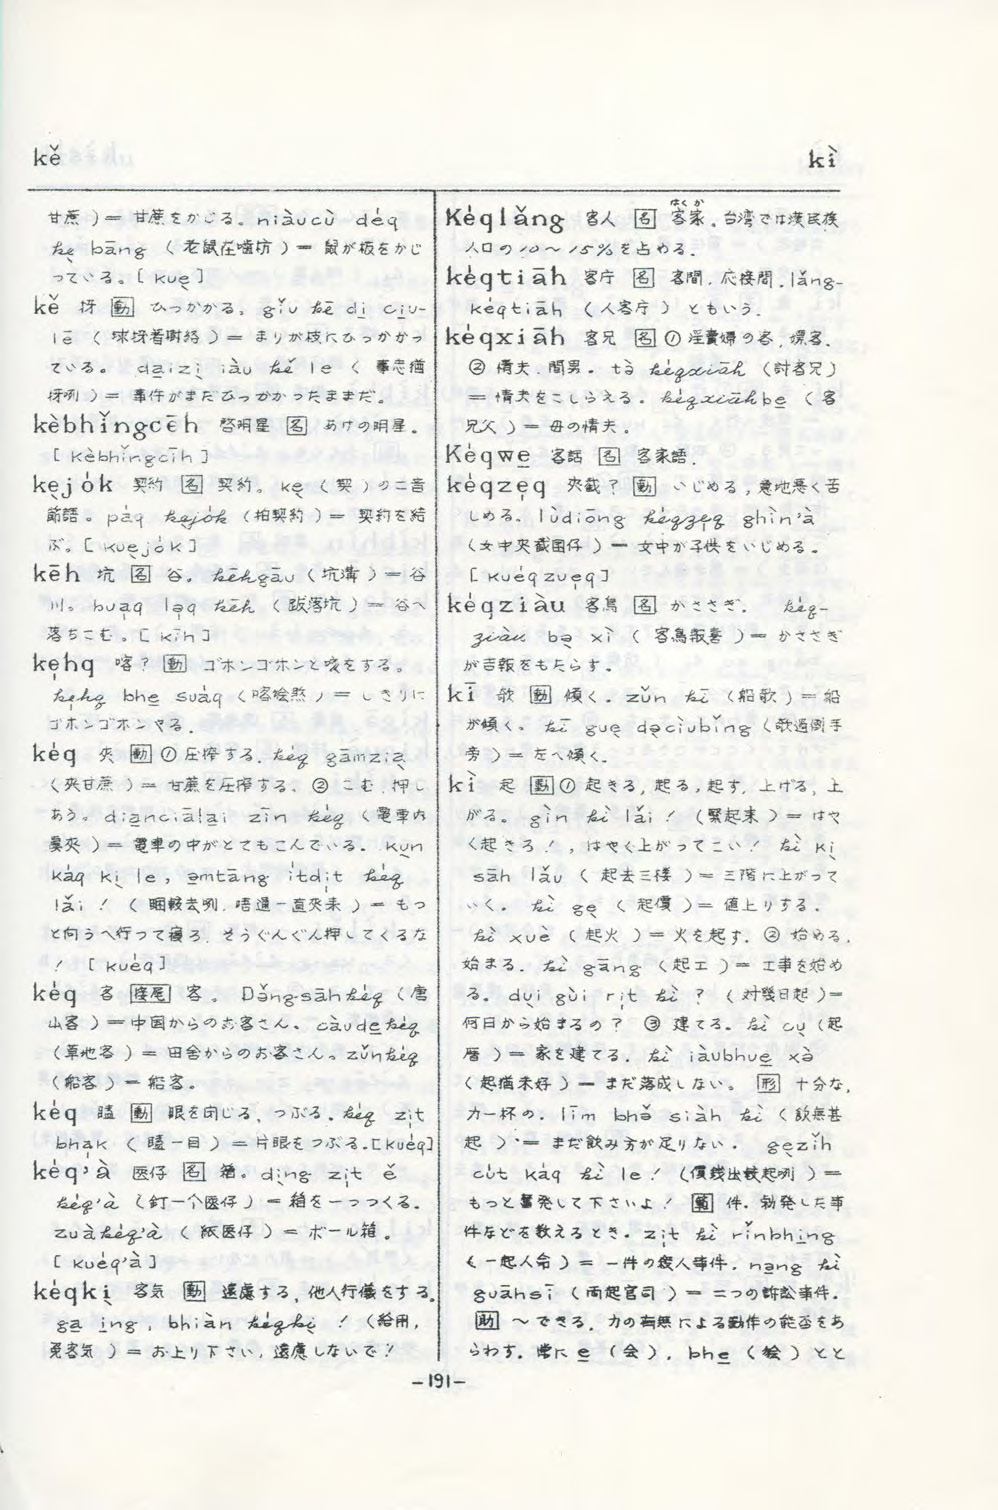 kě
kì
甘蔗 ) = 甘蔗をかじる。niàucù déq
kẹ bāng ( 老鼠在嚙坊 ) = 鼠が板をかじ
っている。[ kuẹ ]
kē 抲 動 ひっかかる。giǔ kē dị ciu-
lē ( 球抲着樹 ) = まりが枝にひっかかっ
ている。 dạizị iàu kē le ( 事志猶
抲咧 ) = 事件がまだひっかかったままだ。
kèbhǐngcēh 啓明星 名 あけの明星。
[ kèbhǐngcīh ]
kẹjók 契約 名 契約。kẹ ( 契 ) の二音
節語。páq kẹjók ( 拍契約 ) = 契約を結
ぶ。[ kuẹjók ]
kēh 坑 名 谷。kēhgāu ( 坑溝 ) = 谷
川。buạq lạq kēh ( 跋落坑 ) = 谷へ
落ちこむ。[ kīh ]
kẹhq 喀? 動 ゴホンゴホンと咳をする。
kẹhq bhe suáq ( 喀 ) = しきりに
ゴホンゴホンやる。
kéq 夾 動 ① 圧搾する。kéq gāmzià
( 夾甘蔗 ) = 甘蔗を圧搾する。 ② こむ, 押し
あう。diạnciālại zīn kéq ( 電車内
夾 ) = 電車の中がとてもこんでいる。kụn
káq kị le, ṃtāng ítdịt kéq
lǎi ! ( 睏較去咧, 唔通一直夾来 ) = もっ
と向うへ行って寝ろ, そうぐんぐん押してくるな
! [ kuéq ]
kéq 客 接尾 客。Dňg-sāhkéq ( 唐
山客 ) = 中国からのお客さん。càudẹkéq
( 草地客 ) = 田舎からのお客さん。zǔnkéq
( 船客 ) = 船客。
kéq 瞌 動 眼を閉じる, つぶる。kéq zịt
bhạk ( 瞌一目 ) = 片眼をつぶる。[ kuéq ]
kéq'à 医仔 名 箱。dịng zịt ě
kéq'à ( 釘一个医仔 ) = 箱を一つつくる。
zuàkéq'à ( 紙医仔 ) = ボール箱。
[ kuéq'à ]
kéqkị 客気 動 遠慮する, 他人行儀をする。
gạ ịng, bhiàn kéqkị ! ( 用,
免客気 ) = お上り下さい, 遠慮しないで!
Kéqlǎng 客人 名 客家。台湾では漢民族
はくか
人口の10〜15%を占める。
kéqtiāh 客庁 名 客間, 応接間。lǎng-
kéqtiāh ( 人客庁 ) ともいう。
kéqxiāh 客兄 名 ① 淫売婦の客, 嫖客。
② 情夫, 間男。tò kéqxiāh ( 討客兄 )
= 情夫をこしらえる。kéqxiāhbẹ ( 客
兄父 ) = 母の情夫。
Kéqwẹ 客話 名 客家語。
kéqzẹq 夾截? 動 いじめる, 意地悪く苦
しめる。lùdiōng kéqzẹq ghìn'à
( 女中夾截囝仔 ) = 女中が子供をいじめる。
[ kuéqzuẹq ]
kéqziàu 客鳥 名 かささぎ。 kéq-
ziàu bọ xì ( 客鳥報喜 ) = かささぎ
が吉報をもたらす。
kī 欹 動 傾く。zǔn kī ( 船欹 ) = 船
が傾く。kī guẹ dọciubǐng ( 欹過倒手
旁 ) = 左へ傾く。
kì 起 動 ① 起きる, 起る, 起す, 上げる, 上
がる。gìn kì lǎi ! ( 緊起来 ) = はや
く起きろ!, はやく上がってこい! kì kị
sāh lǎu ( 起去三楼 ) = 三階に上がって
いく。kì gẹ ( 起價 ) = 値上りする。
kì xuè ( 起火 ) = 火を起す。 ② 始める,
始まる。kì gāng ( 起工 ) = 工事を始め
る。duị gùi rịt kì ? ( 対幾日起 ) =
何日から始まるの? ③ 建てる。kì cụ ( 起
厝 ) = 家を建てる。kì iàubhuẹ xò
( 起猶未好 ) = まだ落成しない。 形 十分な,
力一杯の。līm bhǒ siàh kì ( 飲無甚
起 ) = まだ飲み方が足りない。 gẹzǐh
cút káq kì le ! ( 價銭出較起咧 ) =
もっと奮発して下さいよ! 量 件。勃発した事
件などを数えるとき。zịt kì rǐnbhịng
( 一起人命 ) = 一件の殺人事件。nạng kì
guāhsī ( 両起官司 ) = 二つの訴訟事件。
助 〜できる。力の有無による動作の能否をあ
らわす。常に ẹ ( 会 ), bhẹ ( 㑹 ) とと
-191-